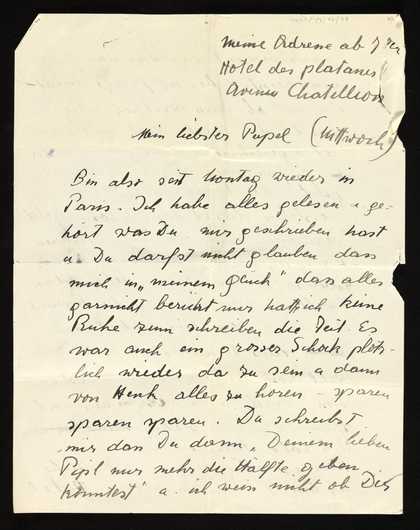 meine Adresse ab 7ten
Hotel des platanes
Avenue Chatillon
Mein liebster Pupel (Mittwoch)
Bin also seit Montag wieder in
Paris. Ich habe alles gelesen u ge-
hört was Du mir geschrieben hast
u Du darfst nicht glauben dass
mich in „meinem Glück“ dass alles
garnicht berührt nur hatte ich keine
Ruhe zum schreiben die Zeit. Es
war auch ein grosser Schock plötz-
lich wieder da zu sein u dann
von Henk alles zu hören – sparen
sparen sparen. Du schreibst
mir dass Du dann „Deinem lieben
Pipl nur mehr die Hälfte geben
könntest“ u. ich weiss nicht ob Dir